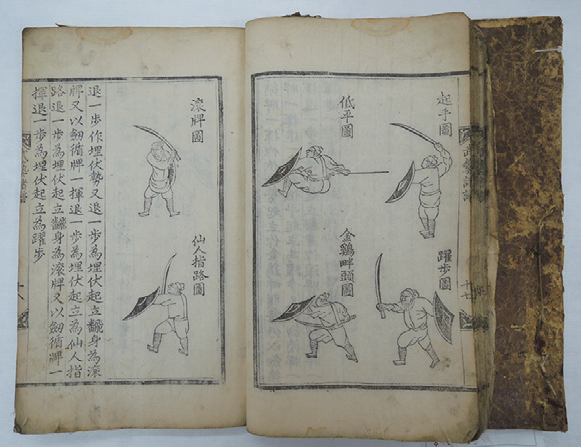 武藝諸譜
十七
起手圖
躍步圖
低平圖
金鷄畔頭圖
滾牌圖
仙人指路圖
退一步作埋伏勢又退一步為埋伏起立飜身為滾
牌又以劒循牌一揮退一步為埋伏起立為仙人指
路退一步為埋伏起立飜身為滾牌又以劒循牌一
揮退一步為埋伏起立為躍步
武藝諸譜
十八